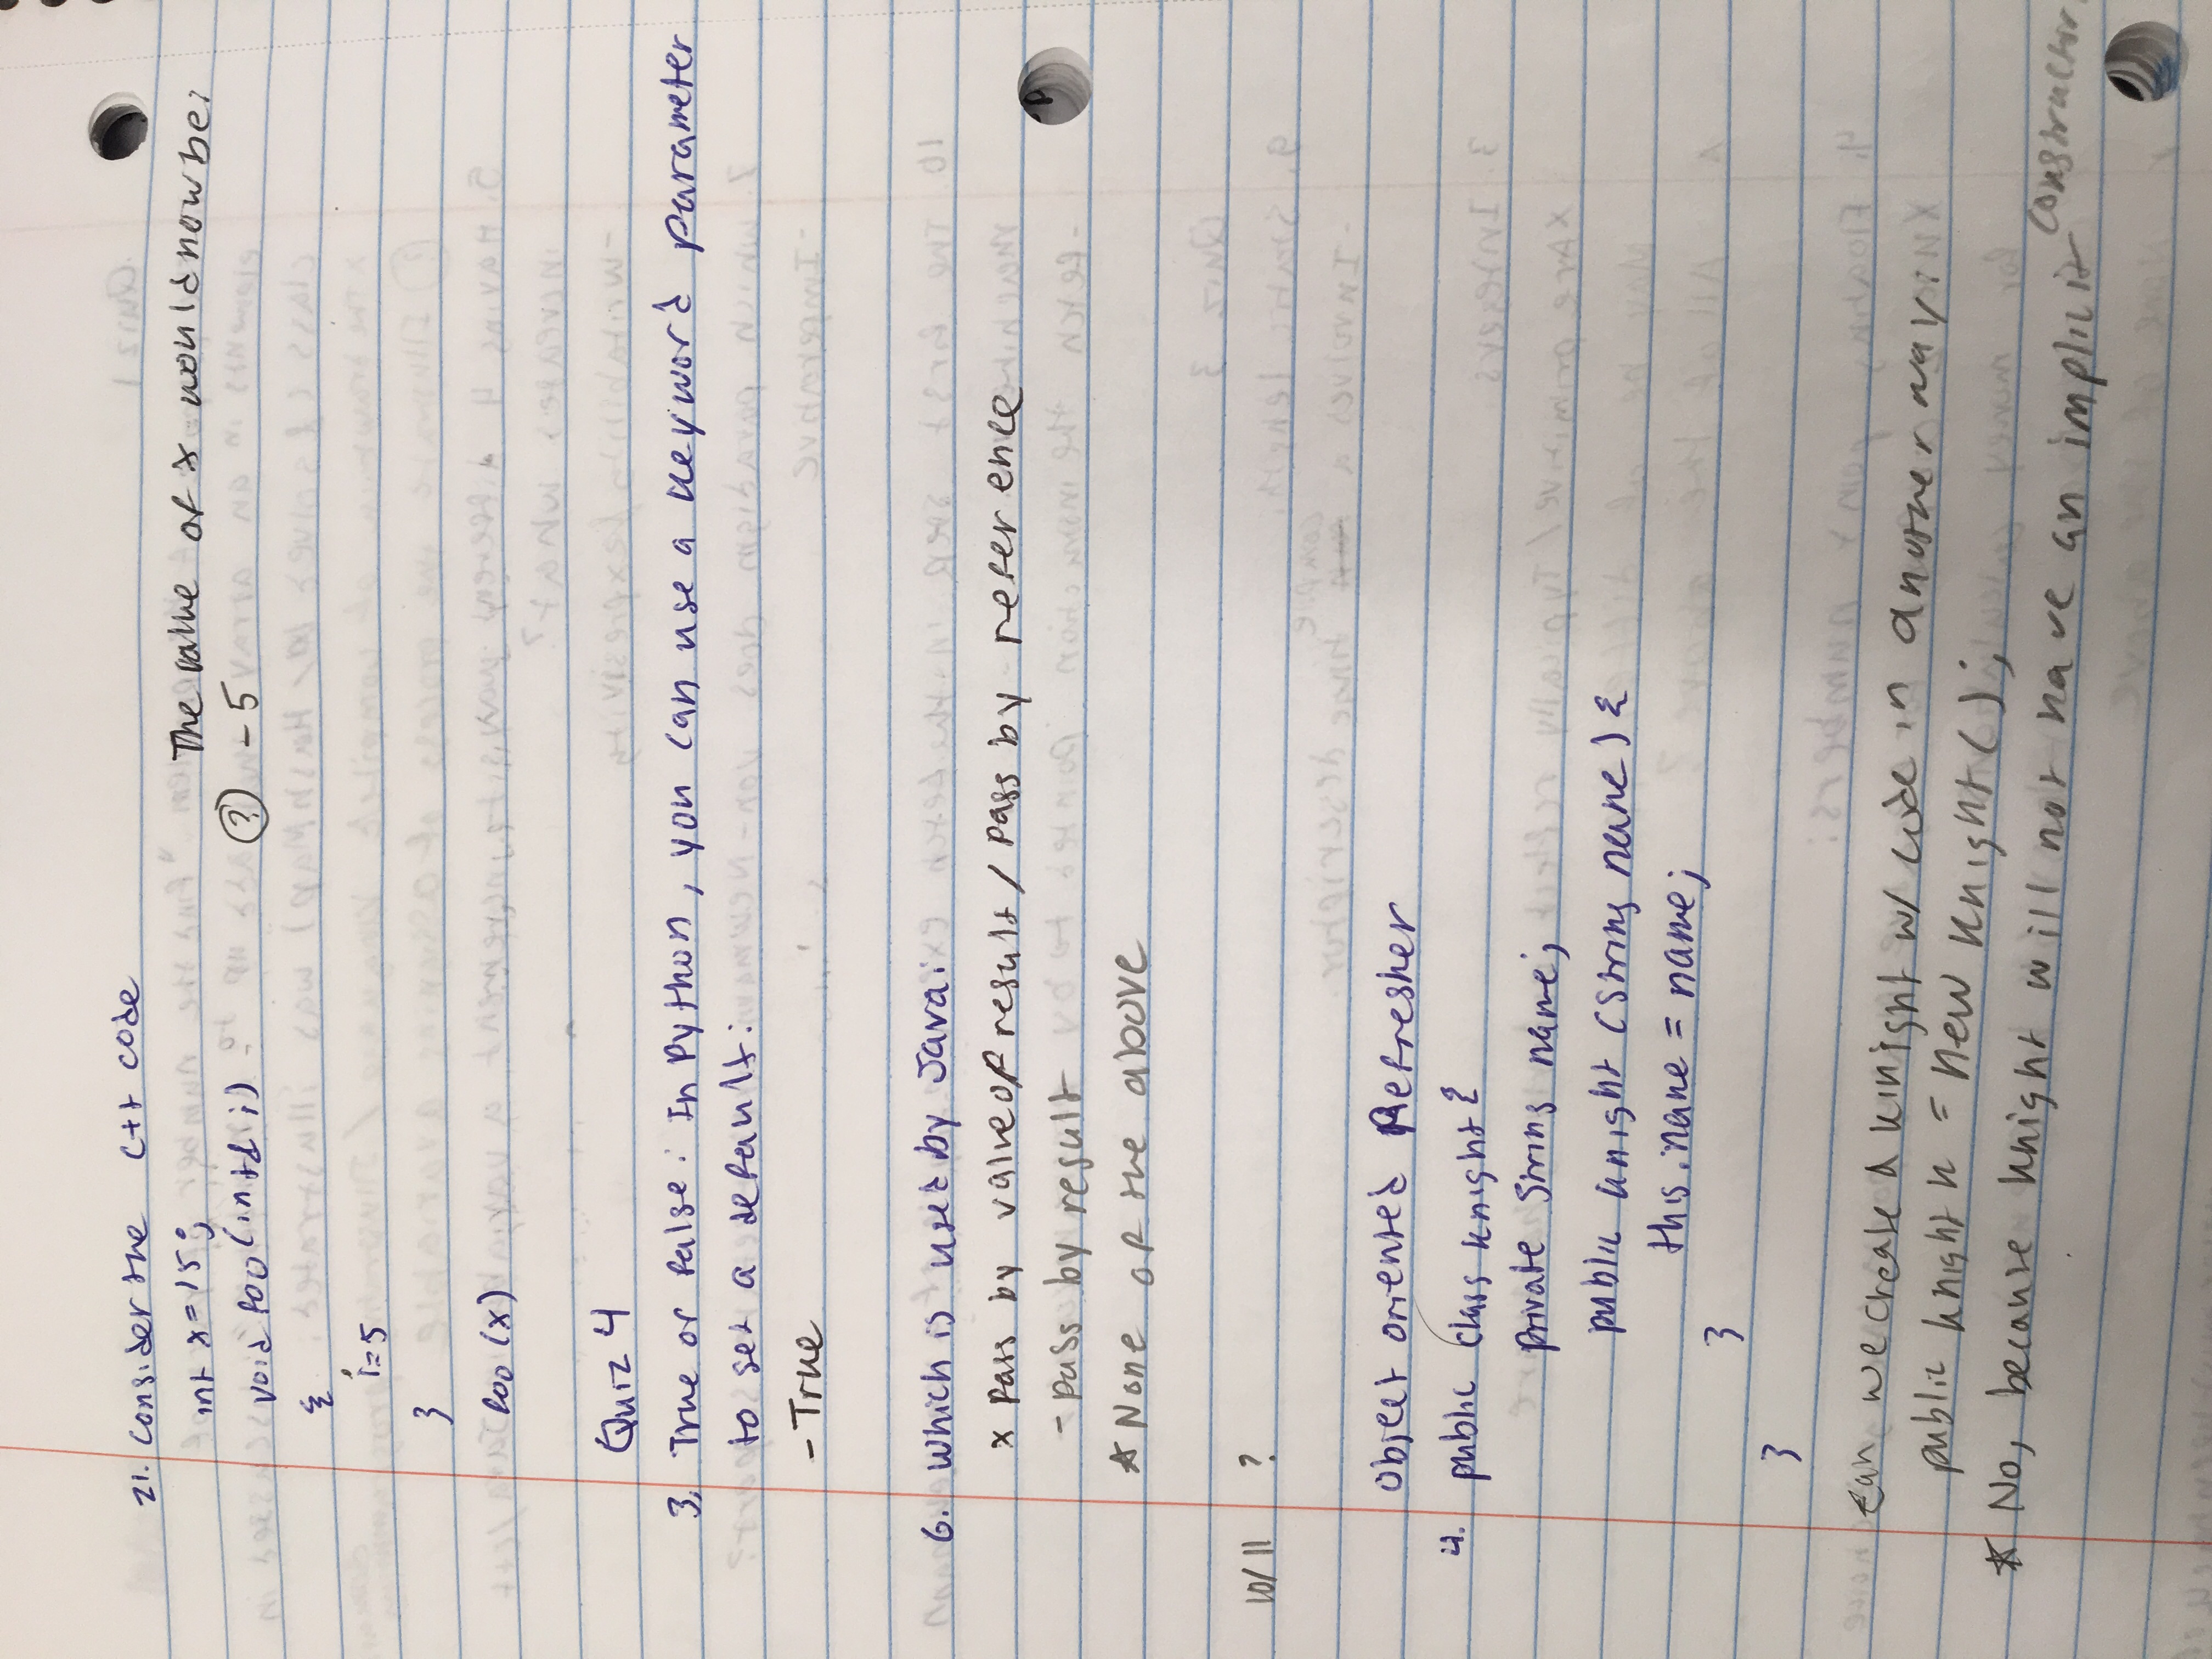 21. Consider the C++ code
int x=15;
The value of x would now be:
void foo (int& i)
? - 5
{
i=5
}
foo (x)
Quiz 4
3. True or false: In Python, you can use a keyword parameter
to set a default:
- True
6. which is used by Java:
x Pass by value of result / Pass by reference
- pass by result
* None of the above
10/11 ?
Object oriented Refresher
4. public class Knight {
private String name;
public Knight (String name) {
this.name = name;
}
}
Can we create a Knight w/ code in another way:
public Knight k = new Knight ();
* No, because Knight will not have an implicit constructor.